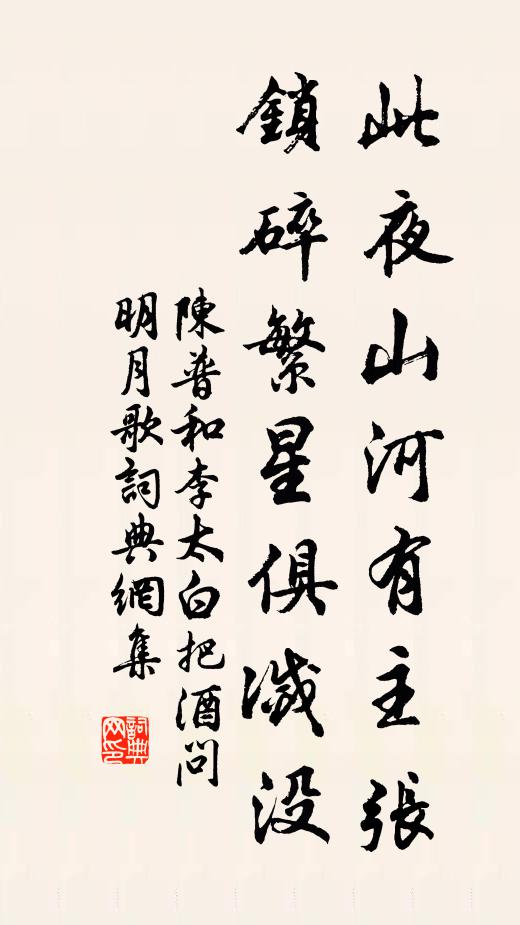 此夜山河有主張
鎖碎繁星俱滅没
陳普和李太白把酒問
明月歌詞典網集
詞典
网印